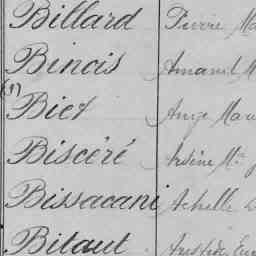 Billard Pierre Ma
Binois Amand M
(1)
Biet Ange Mar
Biscéré Arsène Mie
Bissacani Achelle
Bitaut Aristide Eug